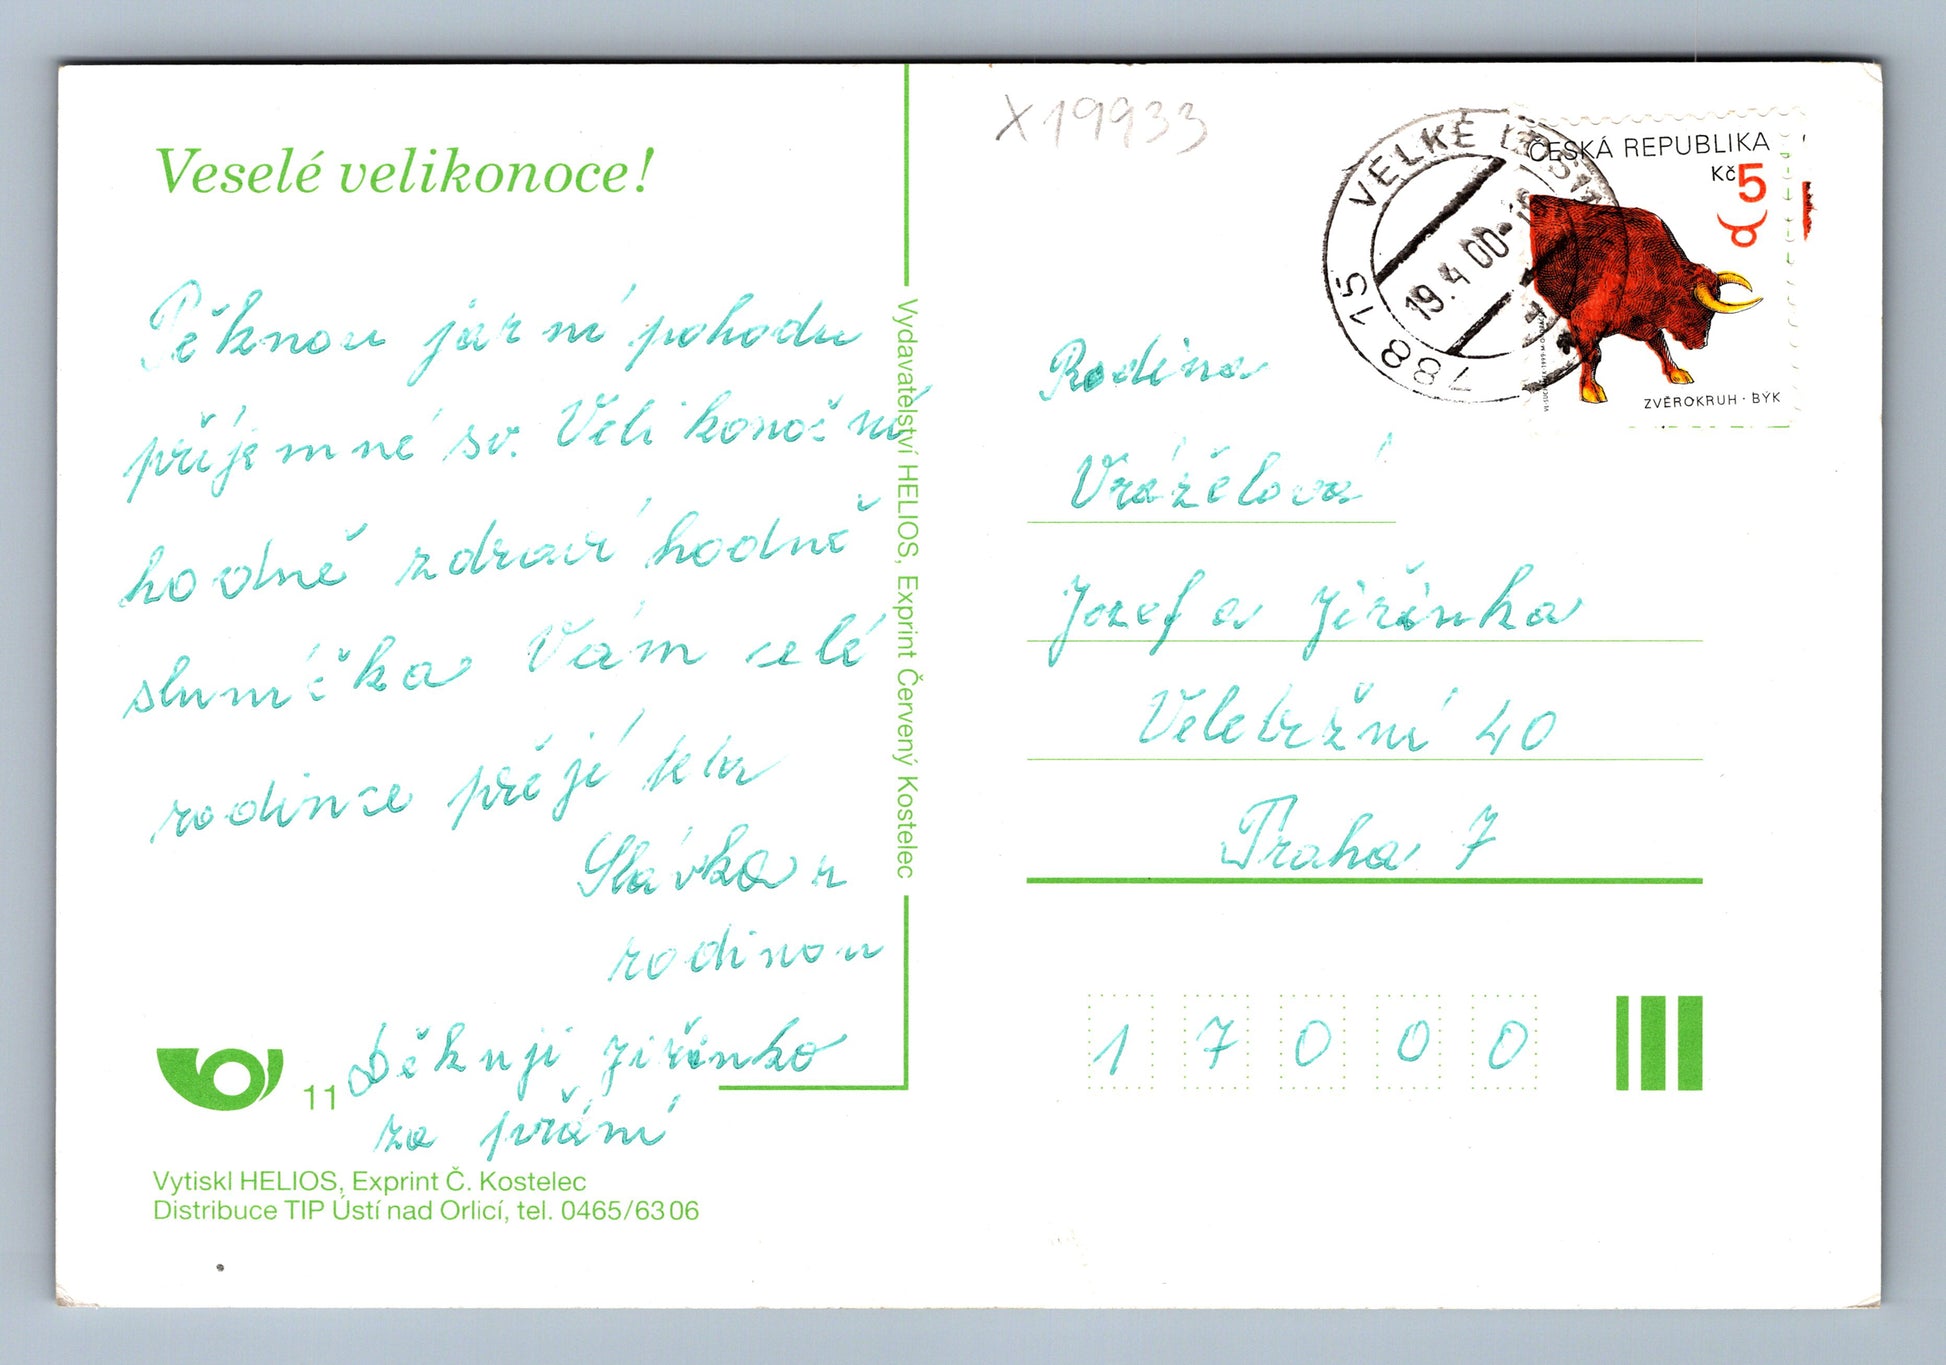 Veselé velikonoce!
Pěknou jarní pohodu
příjemné sv. Velikonoční
hodně zdraví hodně
sluníčka Vám celé
rodince přeje teta
Slávka z
rodinou
Děkuji Jiřinko
za přání
11
Vytiskl HELIOS, Exprint Č. Kostelec
Distribuce TIP Ústí nad Orlicí, tel. 0465/6306
Vydavatelství HELIOS, Exprint Červený Kostelec
X19933
788 15 VELKÉ LOSINY
19.4.00-
ČESKÁ REPUBLIKA
Kč 5
ZVĚROKRUH · BÝK
Rodina
Vráželová
Jozef a Jiřinka
Veletržní 40
Praha 7
17000